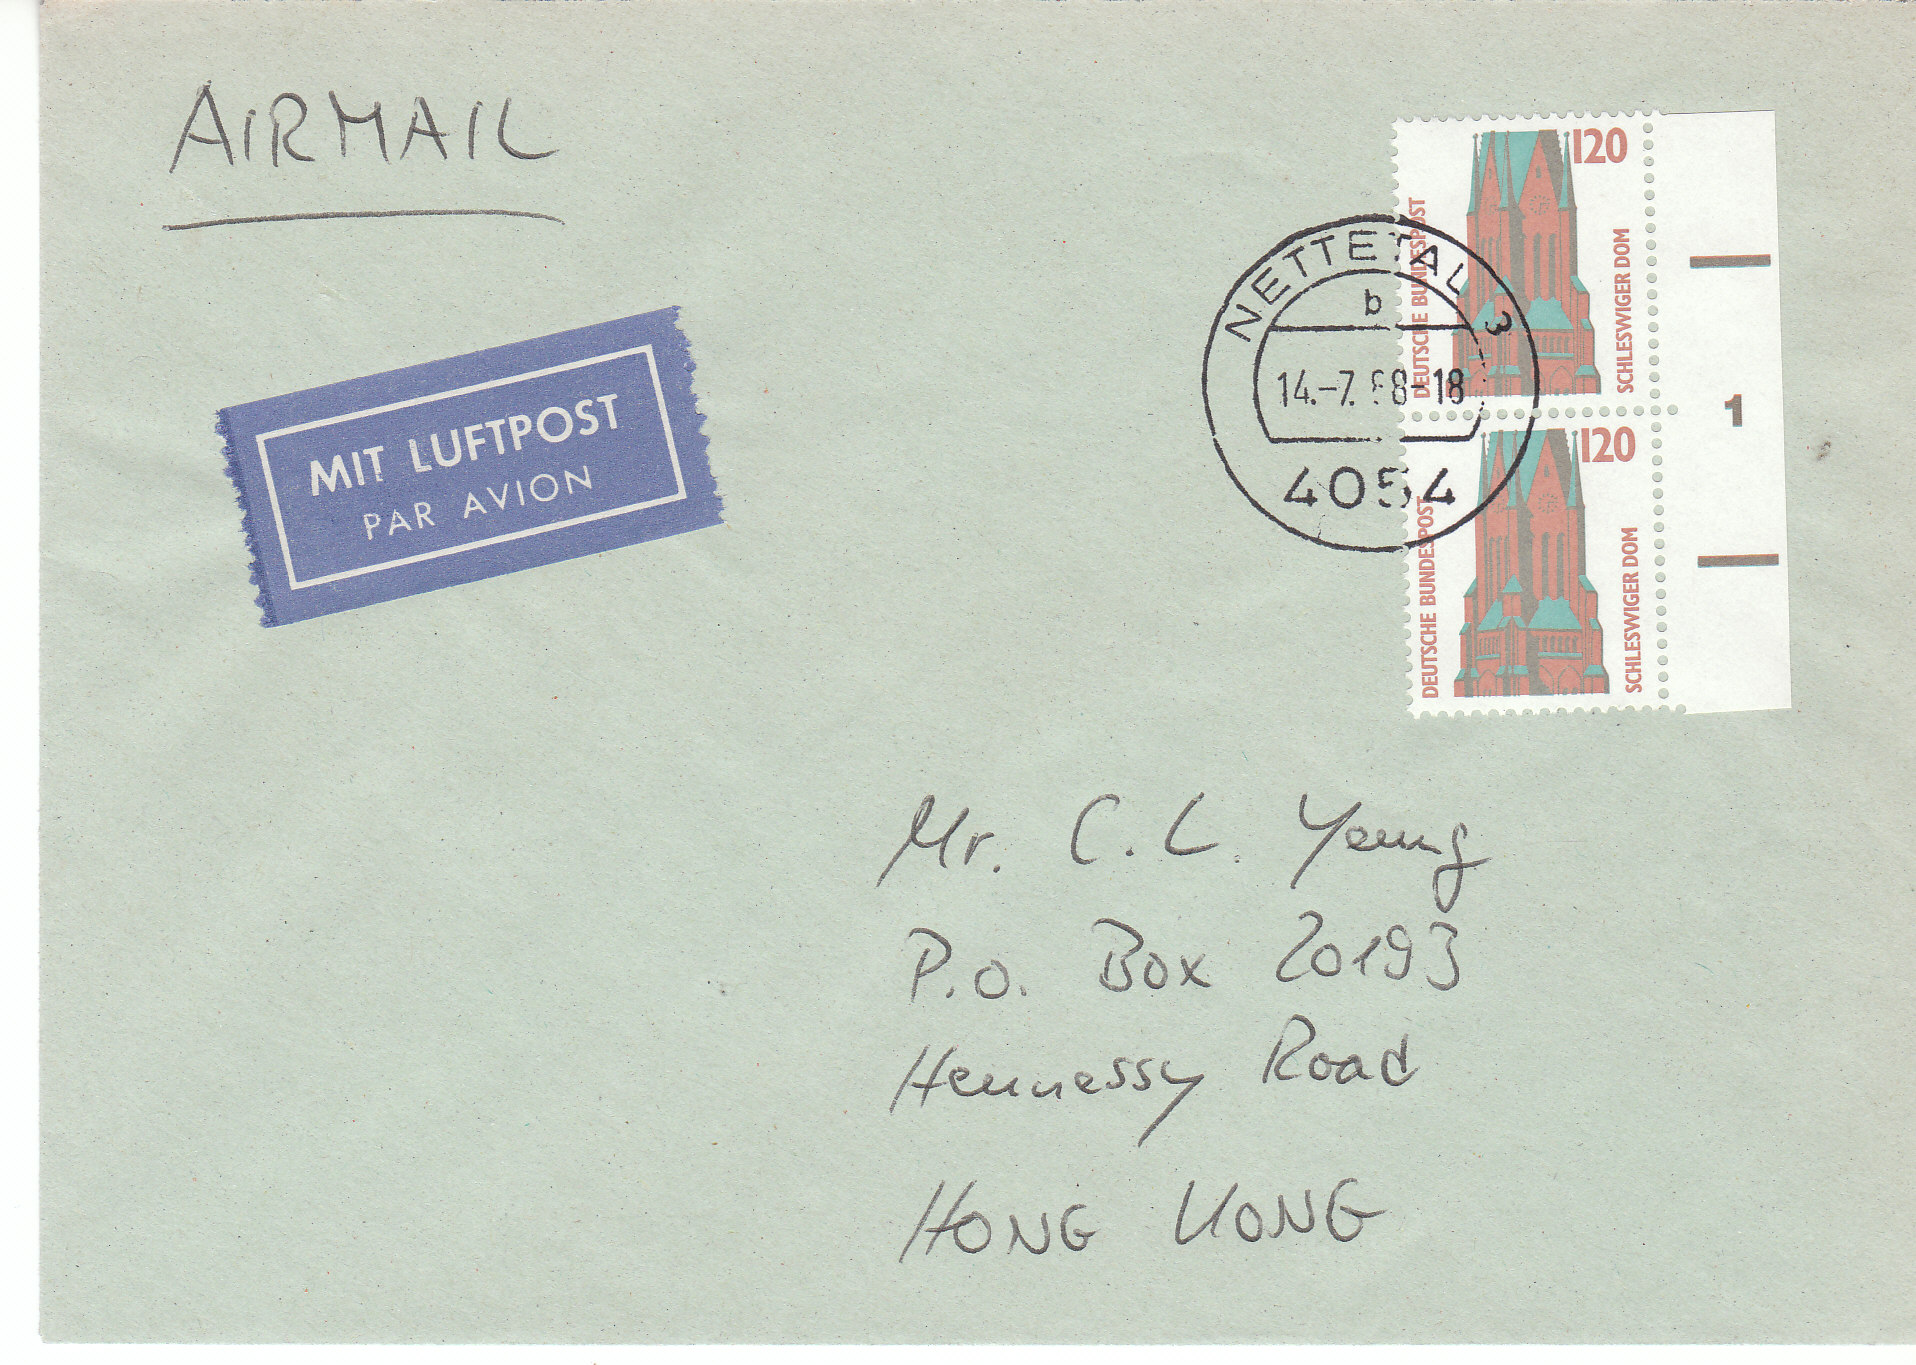 AIRMAIL
MIT LUFTPOST
PAR AVION
120
DEUTSCHE BUNDESPOST
SCHLESWIGER DOM
NETTETAL 3
b
14.-7.88-18
4054
1
120
DEUTSCHE BUNDESPOST
SCHLESWIGER DOM
Mr. C. L. Yeung
P.O. Box 20193
Hennessy Road
HONG KONG